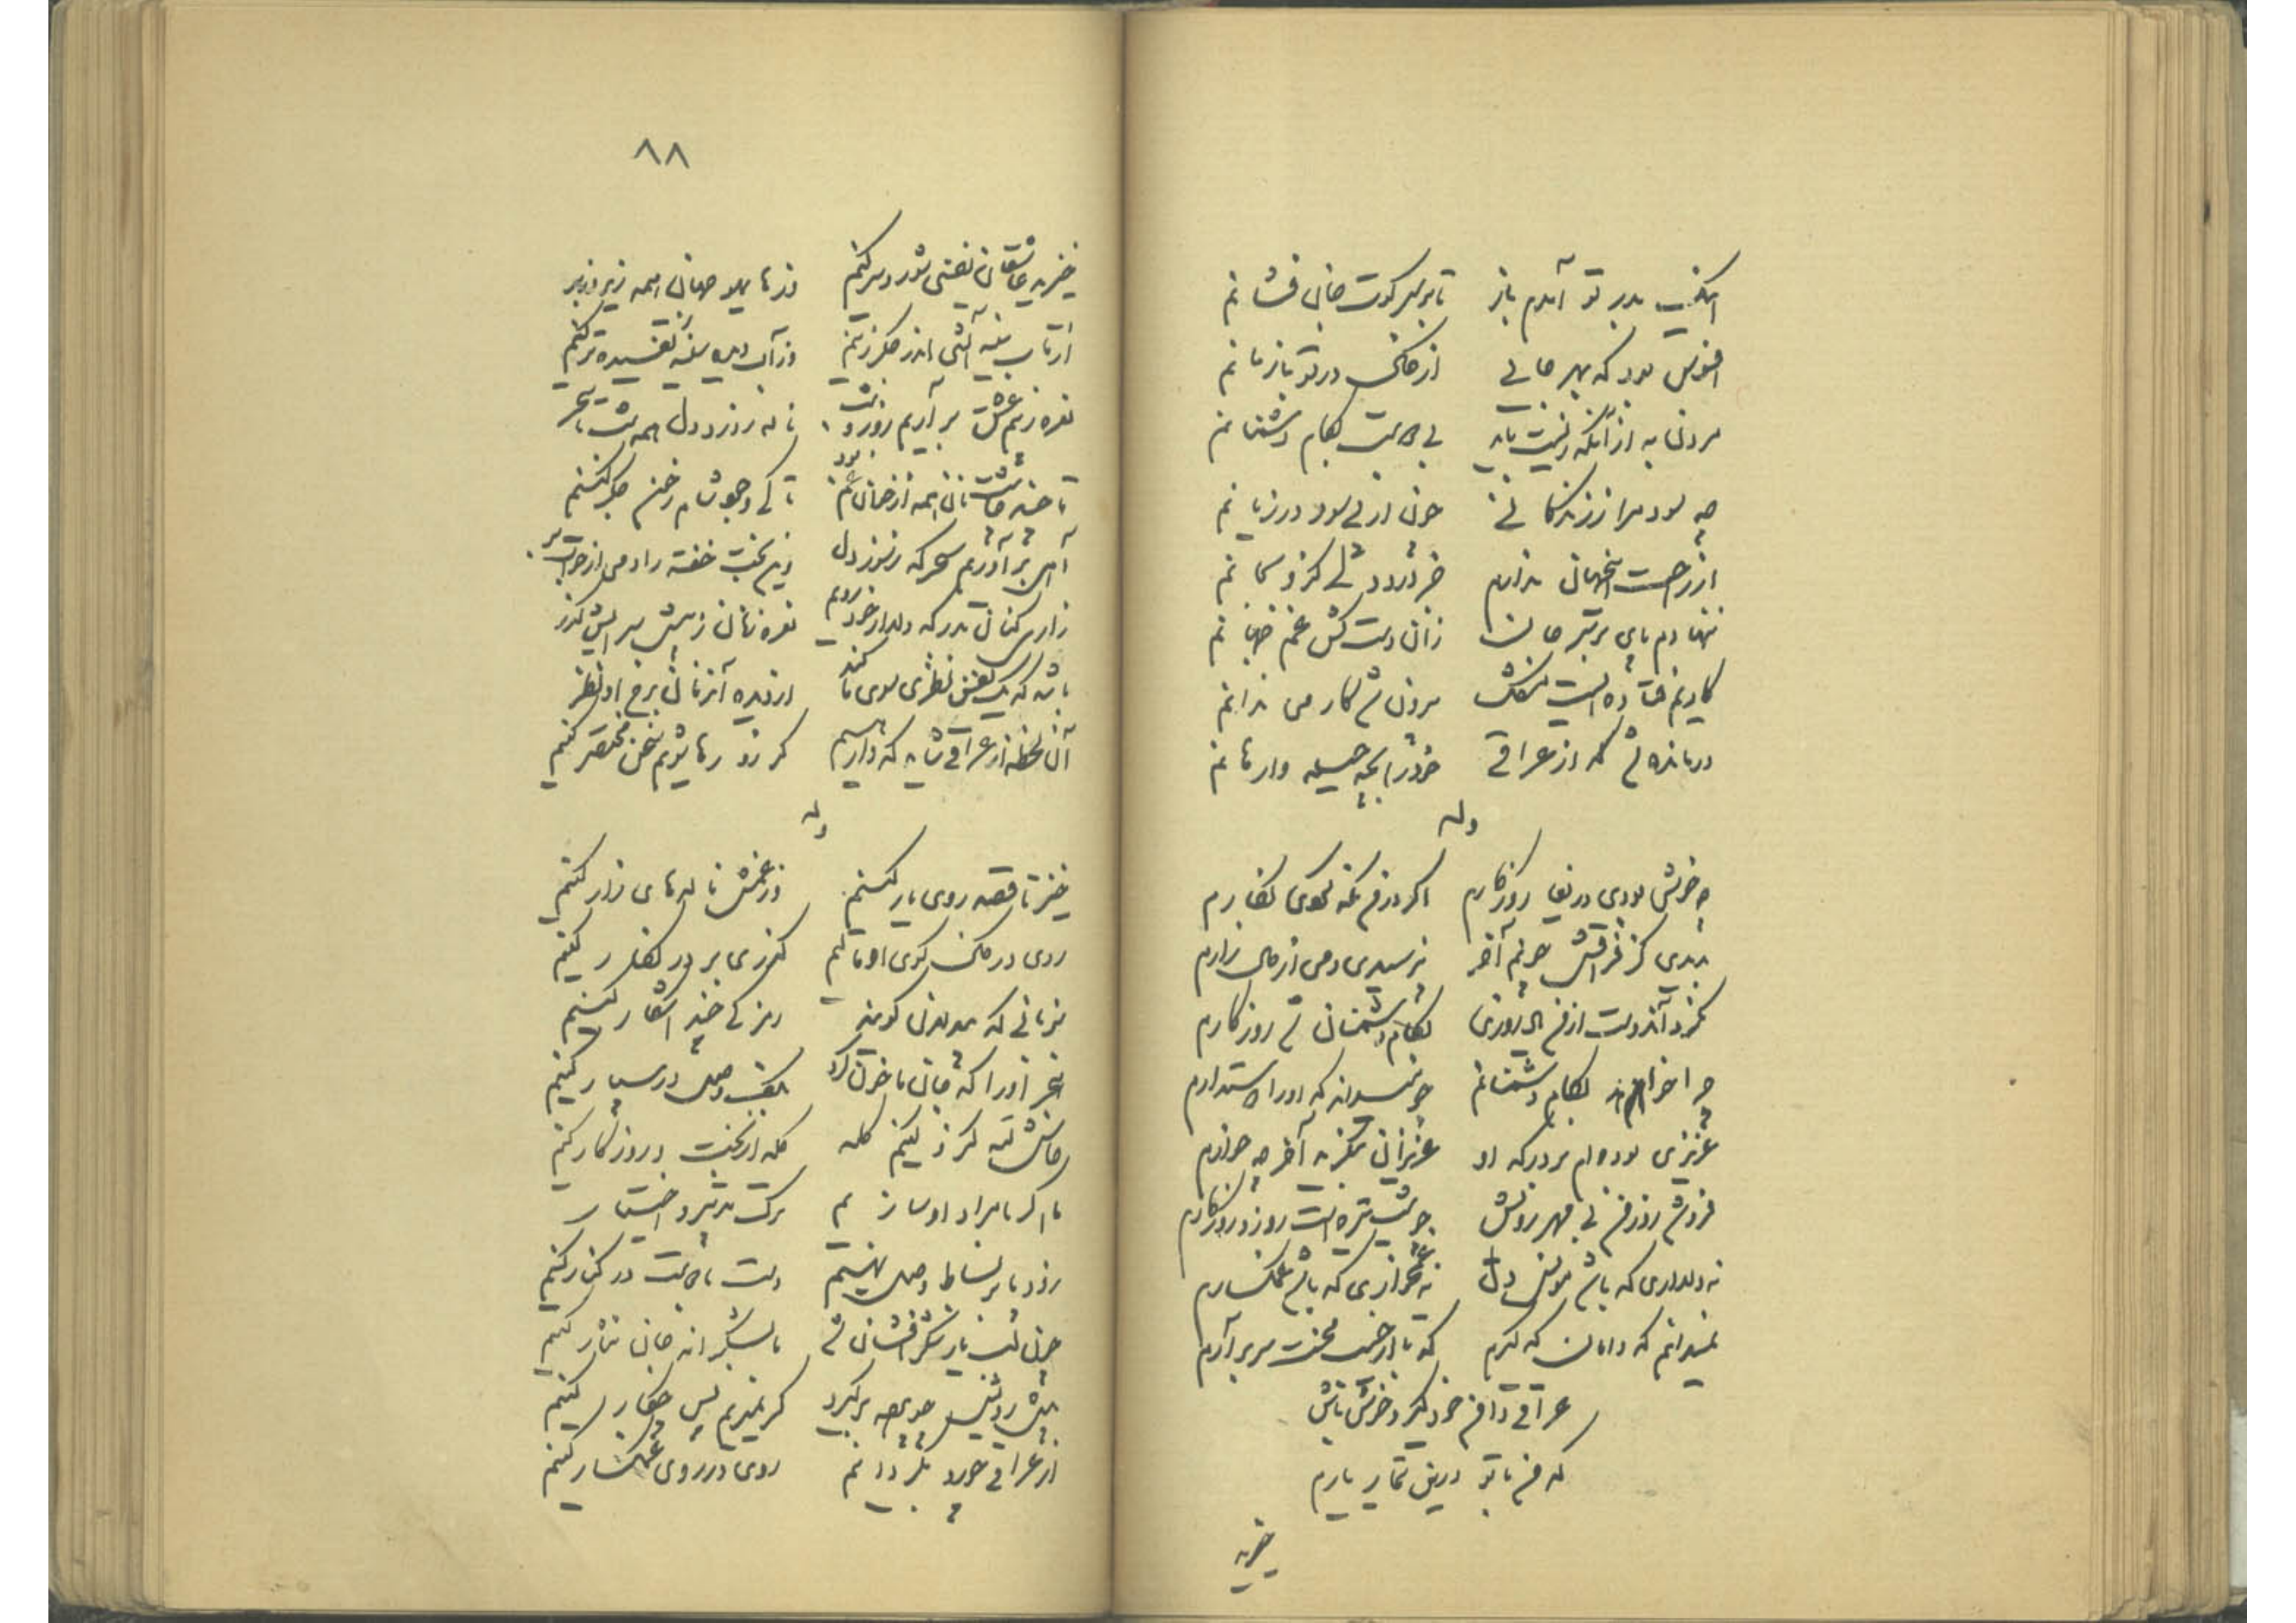 اینک بدر تو آمدم باز تا بر سر کوت جان فشانم
افسوس بود که بهر جانی از خاک در تو باز مانم
مردن به از آنکه زیست باید بی دوست بکام دشمنانم
چه سود مرا ز زندگانی چون از پی سود در زیانم
از راحت این جهان ندارم جز درد دلی کزو بجانم
بنهادم پای بر سر جان زان دست کش غم جهانم
کاریم فتاده است مشکل بیرون شد کار می ندانم
درمانده شدم که از عراقی خود را بچه حیله وارهانم
وله
چه خوش بودی دریغا روزگارم اگر با من نکردی نگارم
بدیدی کز فراقش چونم آخر بپرسیدی دمی از حال زارم
نکرد آن دوست از من یاد روزی بکام دشمنان شد روزگارم
چرا خواهد بکام دشمنانم چو میداند که او را دوستدارم
عزیزی بوده‌ام بر درگه او عزیزان بنگرید آخر چه خوارم
فروشد روز من بی مهر رویش چو شب تیره است روز و روزگارم
نه دلداری که باشد مونس دل نه غمخواری که باشد غمگسارم
نمیدانم که دامان که گیرم که تا از جیب محنت سر برآرم
عراقی دامن خود گیر و خوش باش
که من با تو درین تیمار یارم
خیزید
۸۸
خیزید عاشقان نفسی شور و شر کنیم وز های هو جهان همه زیر و زبر
از تاب سینه آتشی اندر جگر زنیم وز آب دیده سینه تفسیده تر کنیم
نعره زنیم عشق برآریم روز و شب ناله ز درد دل همه شب تا سحر
تا چند عاشقانه همه از خوان غم بود تا کی وجوه شام ز خون جگر کنیم
آهی برآوریم سحرگه ز سوز دل وین بخت خفته را دمی از خواب بر
زاری کنان بدرگه دلدار خود رویم نعره زنان ز پیش سرایش گذر
باشد که یک نفس نظری سوی ما کند دزدیده آن زمان برخ او نظر
آن لحظه از عراقی شاید که وارهیم گر زو رها شویم سخن مختصر کنیم
وله
خیز تا قصد روی یار کنیم وز غمش ناله های زار کنیم
روی در خاک کوی او مالیم گذری بر در نگار کنیم
بزبانی که بیدلان گویند رمز کی چند آشکار کنیم
هجر او را که جان ما خون کرد بکف وصل در سپار کنیم
حاش لله کزو کنیم گله گله از بخت و روزگار کنیم
ما اگر با مراد او سازیم ترک تدبیر و اختیار
زود با بر بساط وصل نهیم دست با دوست در کنار کنیم
چون لب یار شکر افشان شد ما بشکرانه جان نثار کنیم
پیش رویش چو پرده برگیرد گر نمیریم پس چکار کنیم
از عراقی چو رو بگردانیم روی در روی غمگسار کنیم